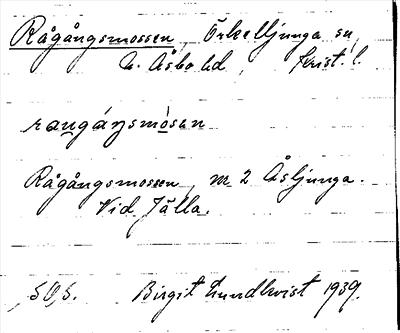 Rågångsmossen, Örkelljunga sn
N. Åsbo hd, Krist. l.
raugáŋsmòsen
Rågångsmossen, m 2 Åsljunga.
Vid Jälla.
SOS. Birgit Lundkvist 1939.